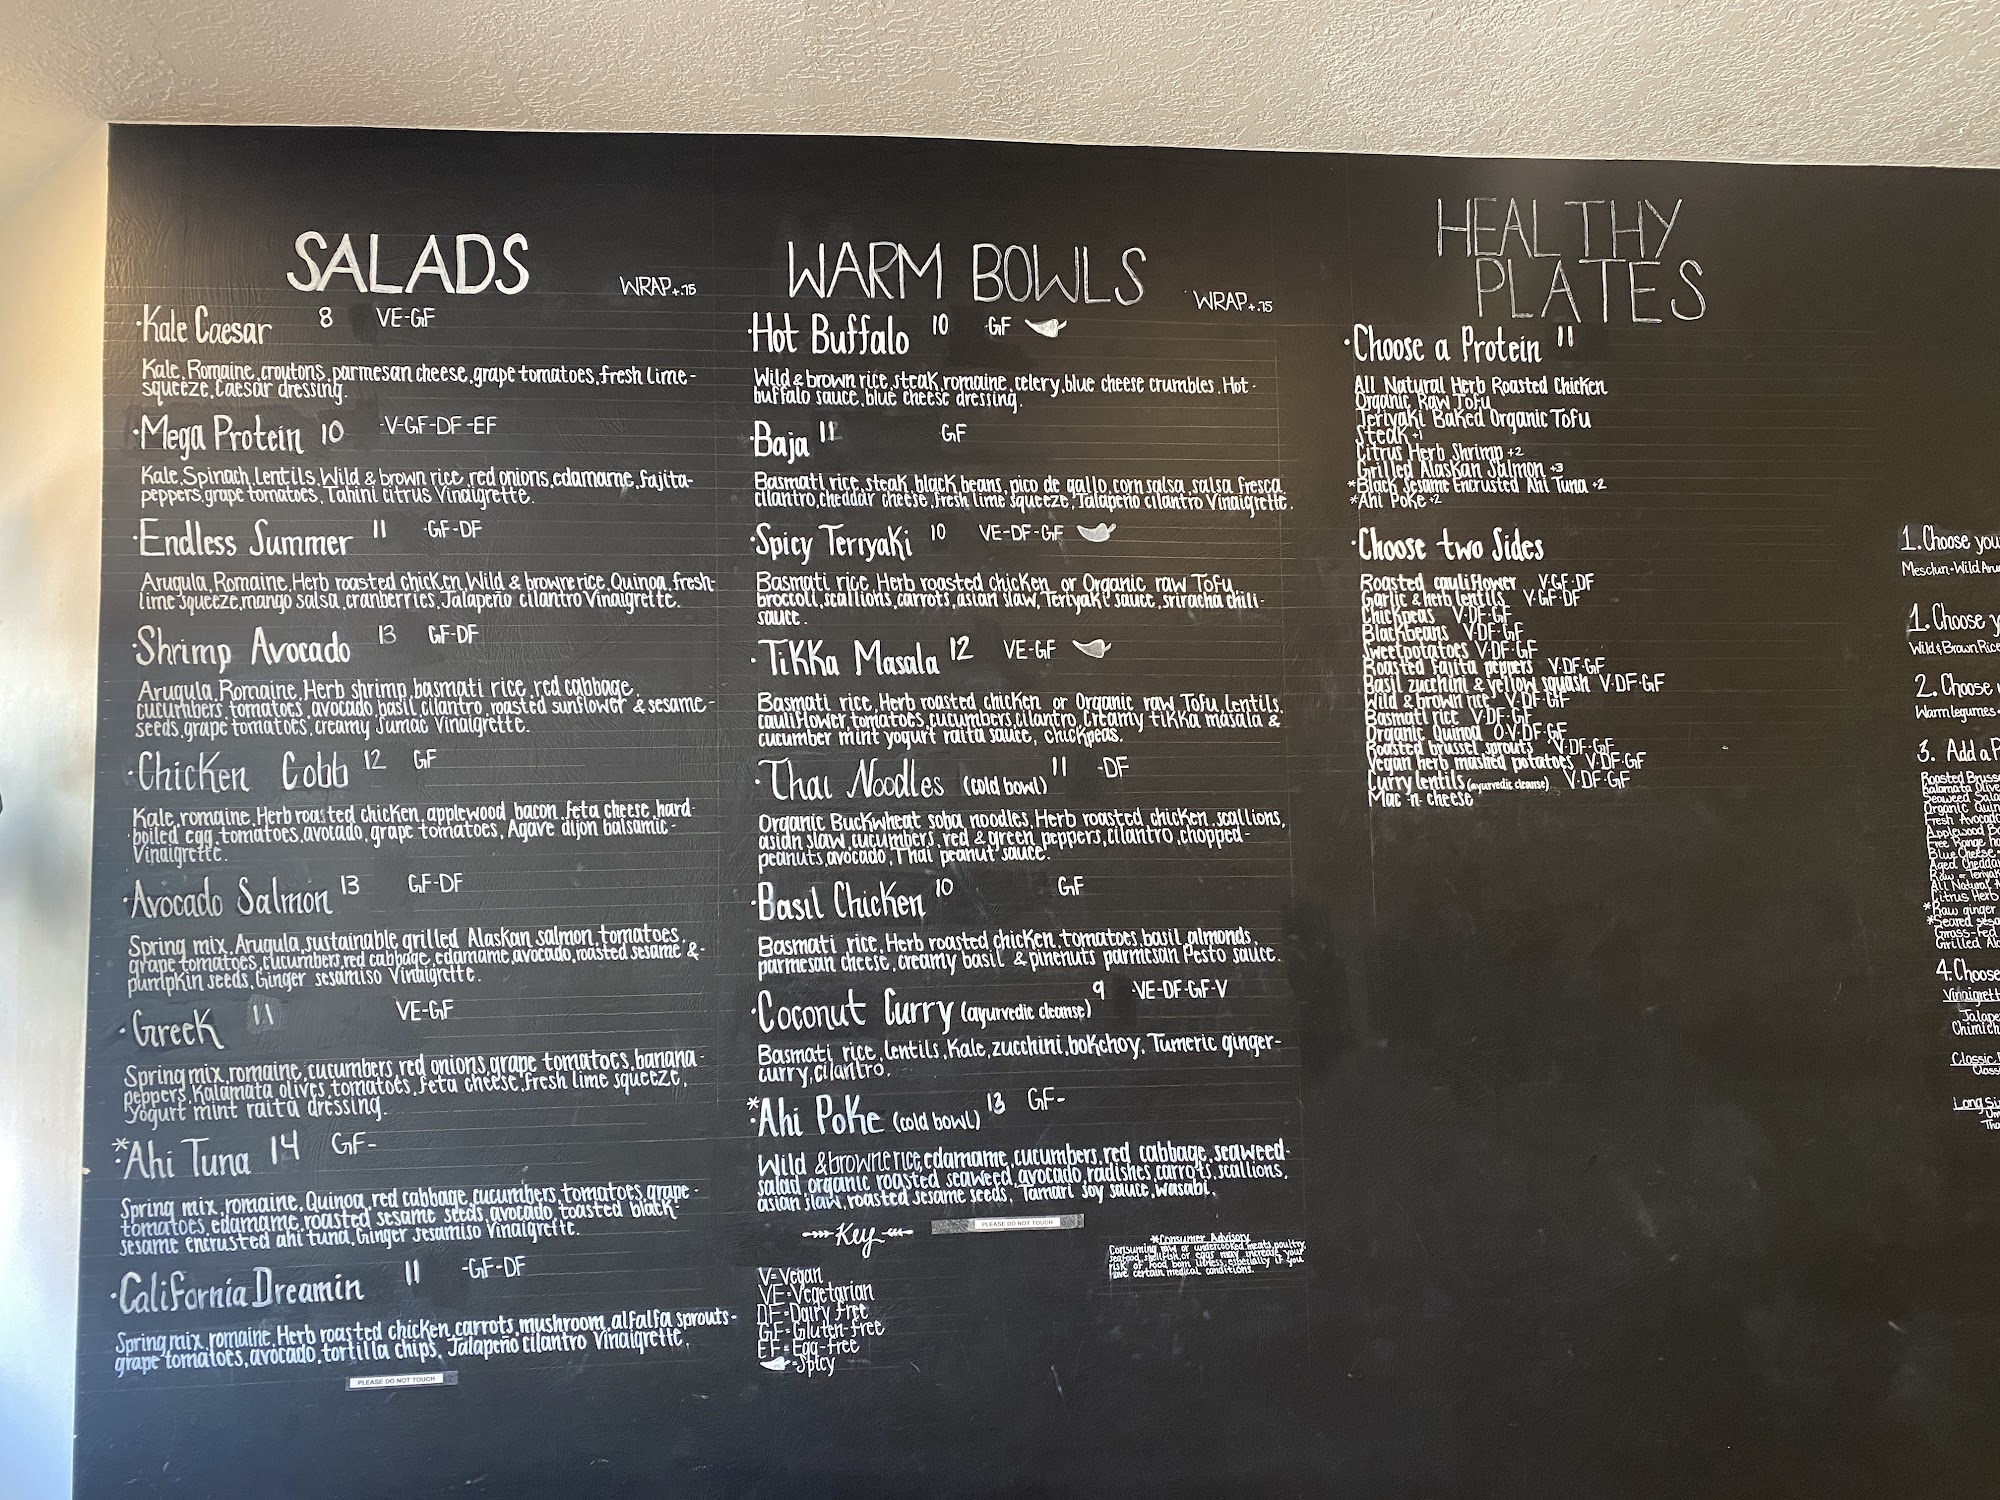 SALADS
WRAP+.75
·Kale Caesar 8 VE-GF
Kale, Romaine, croutons, parmesan cheese, grape tomatoes, fresh lime-
squeeze, Caesar dressing.
·Mega Protein 10 -V-GF-DF-EF
Kale, Spinach, lentils, Wild & brown rice, red onions, edamame, fajita-
peppers, grape tomatoes, Tahini citrus Vinaigrette.
·Endless Summer 11 -GF-DF
Arugula, Romaine, Herb roasted chicken, Wild & browne rice, Quinoa, fresh-
lime squeeze, mango salsa, cranberries, Jalapeño cilantro Vinaigrette.
·Shrimp Avocado 13 GF-DF
Arugula, Romaine, Herb shrimp, basmati rice, red cabbage,
cucumbers, tomatoes, avocado, basil, cilantro, roasted sunflower & sesame-
seeds, grape tomatoes, creamy Sumac Vinaigrette.
·Chicken Cobb 12 GF
Kale, romaine, Herb roasted chicken, applewood bacon, feta cheese, hard-
boiled egg, tomatoes, avocado, grape tomatoes, Agave dijon balsamic-
Vinaigrette.
·Avocado Salmon 13 GF-DF
Spring mix, Arugula, sustainable grilled Alaskan salmon, tomatoes,
grape tomatoes, cucumbers, red cabbage, edamame, avocado, roasted sesame &-
pumpkin seeds, Ginger sesamiso Vinaigrette.
·Greek 11 VE-GF
Spring mix, romaine, cucumbers, red onions, grape tomatoes, banana-
peppers, Kalamata olives, tomatoes, feta cheese, fresh lime squeeze,
Yogurt mint raita dressing.
*·Ahi Tuna 14 GF-
Spring mix, romaine, Quinoa, red cabbage, cucumbers, tomatoes, grape-
tomatoes, edamame, roasted sesame seeds, avocado, toasted black-
sesame encrusted ahi tuna, Ginger sesamiso Vinaigrette.
·California Dreamin 11 -GF-DF
Spring mix, romaine, Herb roasted chicken, carrots, mushroom, alfalfa sprouts-
grape tomatoes, avocado, tortilla chips, Jalapeño cilantro Vinaigrette.
PLEASE DO NOT TOUCH
WARM BOWLS
WRAP+.75
·Hot Buffalo 10 -GF
Wild & brown rice, steak, romaine, celery, blue cheese crumbles, Hot-
buffalo sauce, blue cheese dressing.
·Baja 11 GF
Basmati rice, steak, black beans, pico de gallo, corn salsa, salsa fresca,
cilantro, cheddar cheese, fresh lime squeeze, Jalapeño cilantro Vinaigrette.
·Spicy Teriyaki 10 VE-DF-GF
Basmati rice, Herb roasted chicken or Organic raw Tofu,
broccoli, scallions, carrots, asian slaw, Teriyaki sauce, sriracha chili-
sauce.
·Tikka Masala 12 VE-GF
Basmati rice, Herb roasted chicken or Organic raw Tofu, lentils,
cauliflower, tomatoes, cucumbers, cilantro, Creamy tikka masala &
cucumber mint yogurt raita sauce, chickpeas.
·Thai Noodles (cold bowl) 11 -DF
Organic Buckwheat soba noodles, Herb roasted chicken, scallions,
asian slaw, cucumbers, red & green peppers, cilantro, chopped-
peanuts, avocado, Thai peanut sauce.
·Basil Chicken 10 GF
Basmati rice, Herb roasted chicken, tomatoes, basil, almonds,
parmesan cheese, creamy basil & pinenuts parmesan Pesto sauce.
·Coconut Curry (ayurvedic cleanse) 9 -VE-DF-GF-V
Basmati rice, lentils, Kale, zucchini, bokchoy, Tumeric ginger-
curry, cilantro.
*·Ahi Poke (cold bowl) 13 GF-
Wild & browne rice, edamame, cucumbers, red cabbage, seaweed-
salad, organic roasted seaweed, avocado, radishes, carrots, scallions,
asian slaw, roasted sesame seeds, Tamari soy sauce, wasabi.
Key
PLEASE DO NOT TOUCH
V=Vegan
VE=Vegetarian
DF=Dairy Free
GF=Gluten-free
EF=Egg-free
=Spicy
*Consumer Advisory
Consuming raw or undercooked meats, poultry,
seafood, shellfish, or eggs may increase your
risk of food born illness, especially if you
have certain medical conditions.
HEALTHY
PLATES
·Choose a Protein 11
All Natural Herb Roasted Chicken
Organic Raw Tofu
Teriyaki Baked Organic Tofu
Steak +1
Citrus Herb Shrimp +2
Grilled Alaskan Salmon +3
*Black Sesame Encrusted Ahi Tuna +2
*Ahi Poke +2
·Choose two Sides
Roasted cauliflower V-GF-DF
Garlic & herb lentils V-GF-DF
Chickpeas V-DF-GF
Blackbeans V-DF-GF
Sweetpotatoes V-DF-GF
Roasted Fajita peppers V-DF-GF
Basil zucchini & yellow squash V-DF-GF
Wild & brown rice V-DF-GF
Basmati rice V-DF-GF
Organic Quinoa O-V-DF-GF
Roasted brussel sprouts V-DF-GF
Vegan herb mashed potatoes V-DF-GF
Curry lentils (ayurvedic cleanse) V-DF-GF
Mac-n-cheese
1. Choose you
Mesclun-Wild Aru
1. Choose y
Wild & Brown Rice
2. Choose
Warm legumes-
3. Add a P
Roasted Bruss
Kalamata Olive
Seaweed Sala
Organic Quin
Fresh Avocado
Applewood Ba
Free Range Ha
Blue Cheese
Aged Cheddar
Raw or Teriyak
All Natural
Citrus Herb
*Raw ginger
*Seared sesa
Grass-Fed
Grilled Ala
4. Choose
Vinaigrett
Jalape
Chimich
Classic
Class
Long Si
Um
Tha